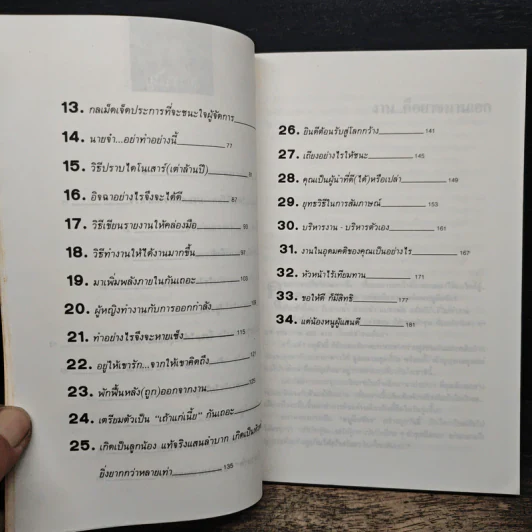 13. กลเม็ดเจ็ดประการที่จะชนะใจผู้จัดการ
14. นายจ๋า...อย่าทำอย่างนี้ 77
15. วิธีปราบไดโนเสาร์(เต่าล้านปี)
16. อิจฉาอย่างไรจึงจะได้ดี 87
17. วิธีเขียนรายงานให้คล่องมือ
18. วิธีทำงานให้ได้งานมากขึ้น
19. มาเพิ่มพลังภายในกันเถอะ
20. ผู้หญิงทำงานกับการออกกำลัง
21. ทำอย่างไรจึงจะหายเซ็ง 115
22. อยู่ให้เขารัก...จากให้เขาคิดถึง
23. พักฟื้นหลัง(ถูก)ออกจากงาน
24. เตรียมตัวเป็น "เถ้าแก่เนี้ย" กันเถอะ
25. เกิดเป็นลูกน้อง แท้จริงแสนลำบาก เกิดเป็น
ยิ่งยากกว่าหลายเท่า 135
26. ยินดีต้อนรับสู่โลกกว้าง 141
27. เถียงอย่างไรให้ชนะ 145
28. คุณเป็นผู้นำที่ดี(ได้)หรือเปล่า 149
29. ยุทธวิธีในการสัมภาษณ์ 153
30. บริหารงาน - บริหารตัวเอง 161
31. งานในอุดมคติของคุณเป็นอย่างไร 167
32. หัวหน้าไร้เทียมทาน 171
33. ขอให้ดี ก็มีสิทธิ 177
34. แด่น้องหนูผู้แสนดี 181